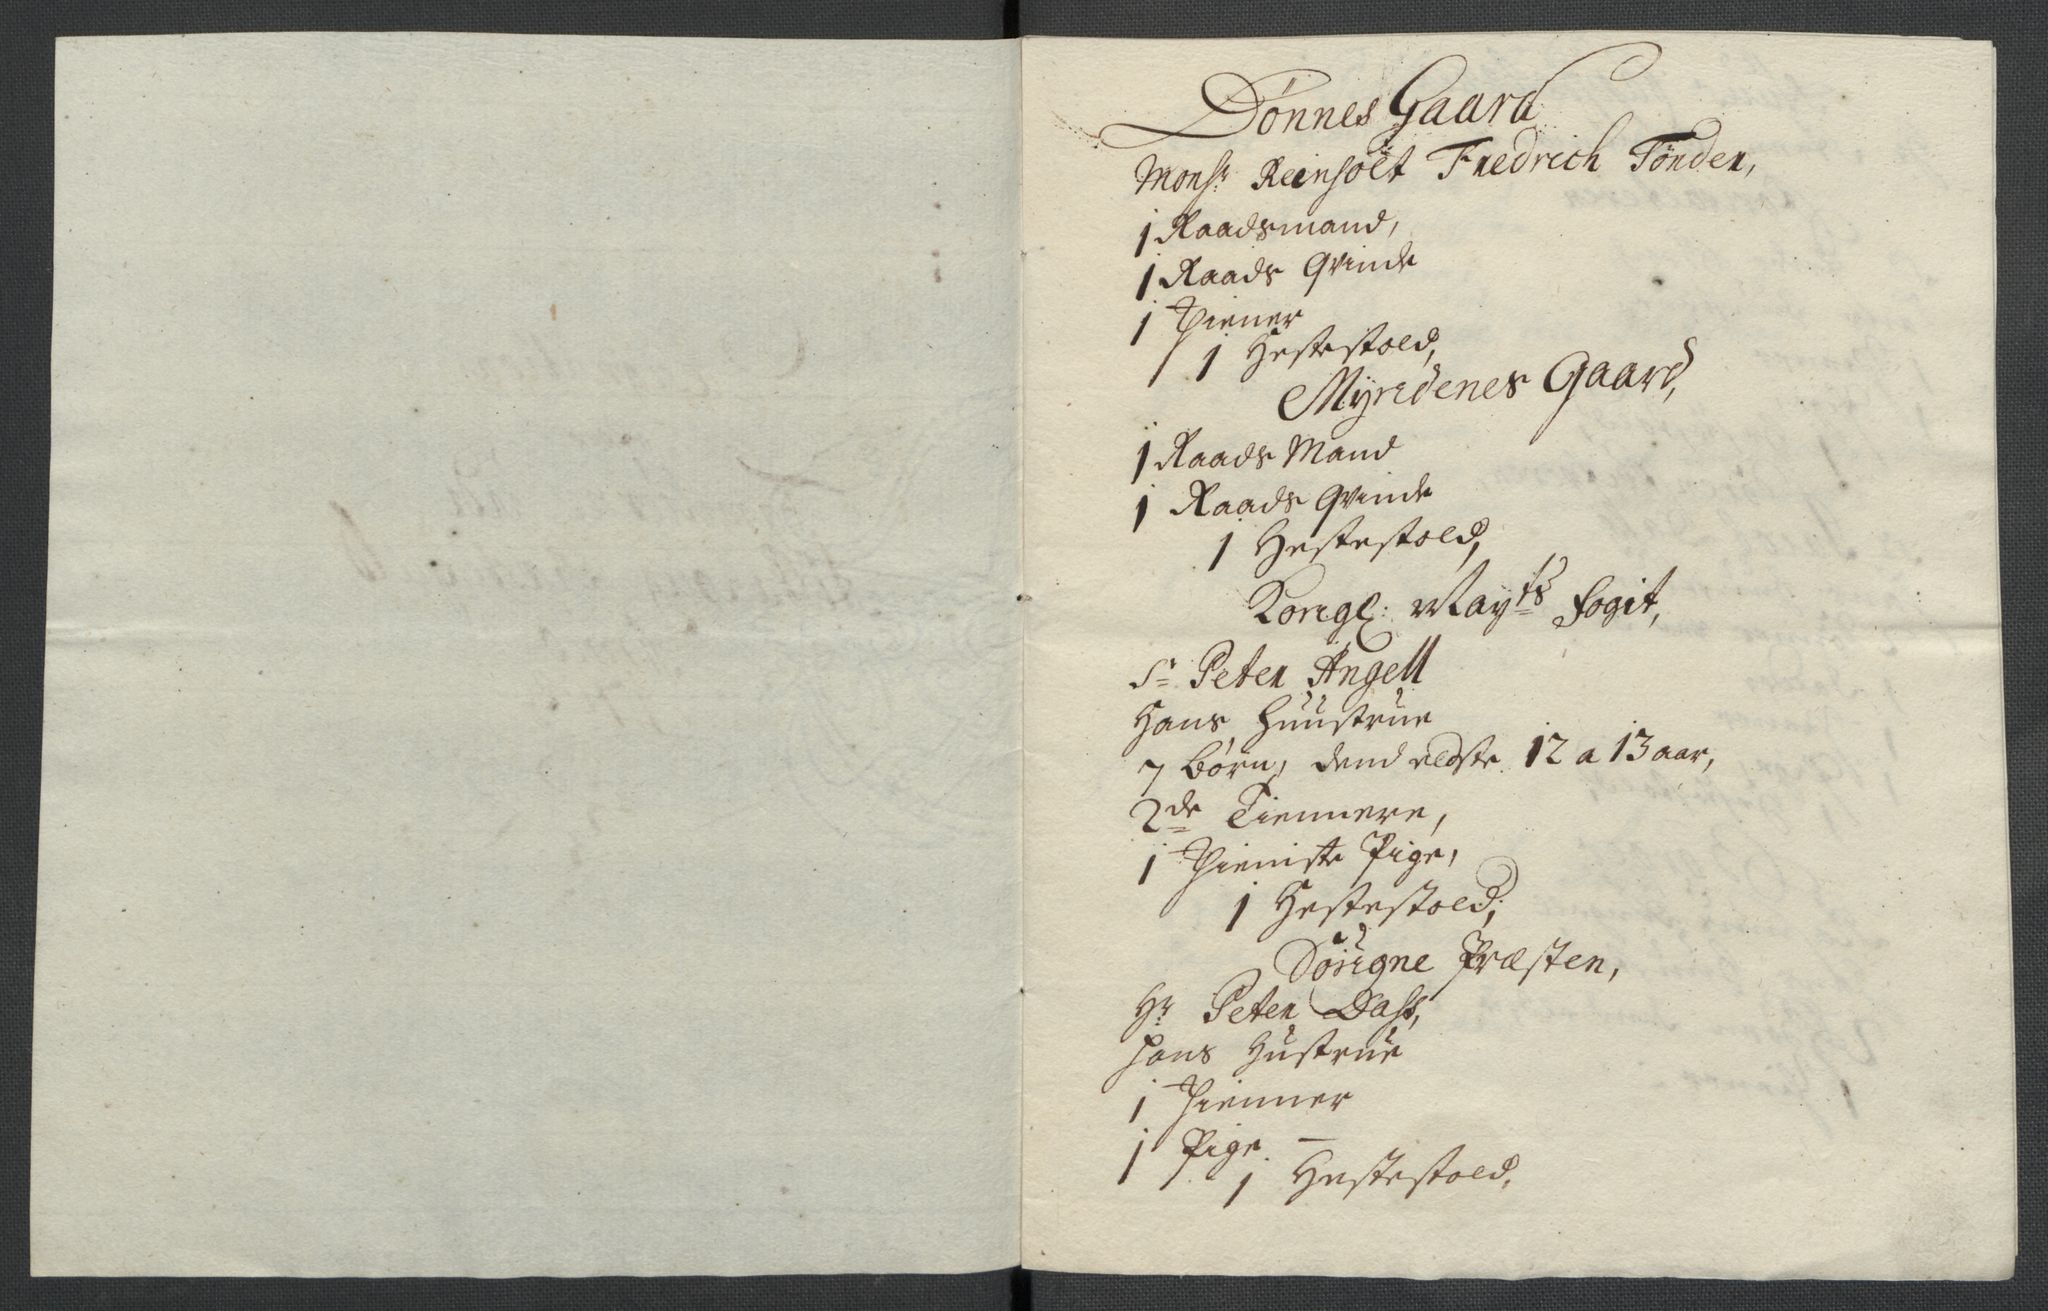 Dønnes Gaard
Monsr Reinholt Fredrich Tønder,
1 Raadsmand,
1 Raads Qvinde
1 Thiener
1 Hestestold,
Myredenes Gaard,
1 Raads Mand
1 Raads Qvinde
1 Hestestold,
Kongl: Mayts fogit,
Sr Peter Angell
Hans Huustrue
7 børn, dend eldste 12 a 13 aar,
2de Tiennere,
1 Thieniste Pige,
1 Hestestold,
Sogne Præsten,
Hr Peter Dass,
Hans Hustrue
1 Thienner
1 Pige
1 Hestestold,